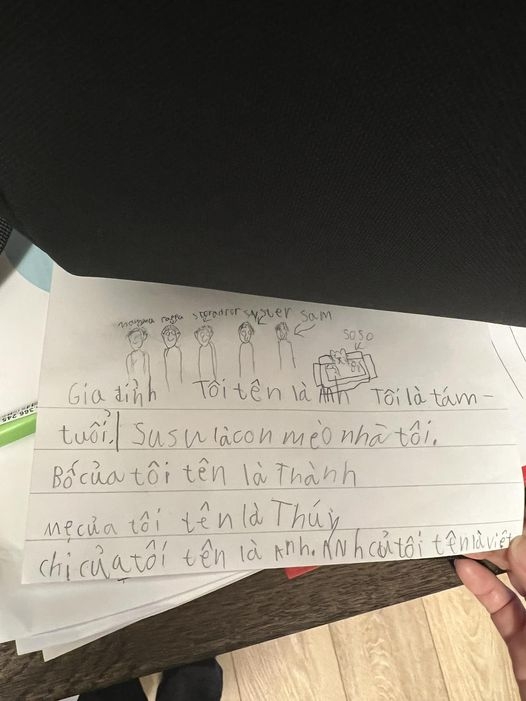 sister Sam
soso
Gia đình Tôi tên là Anh Tôi là tám-
tuổi. Susu là con mèo nhà tôi.
Bố của tôi tên là Thành
mẹ của tôi tên là Thúy
chị của tôi tên là Anh. ANh củ tôi tên là việt